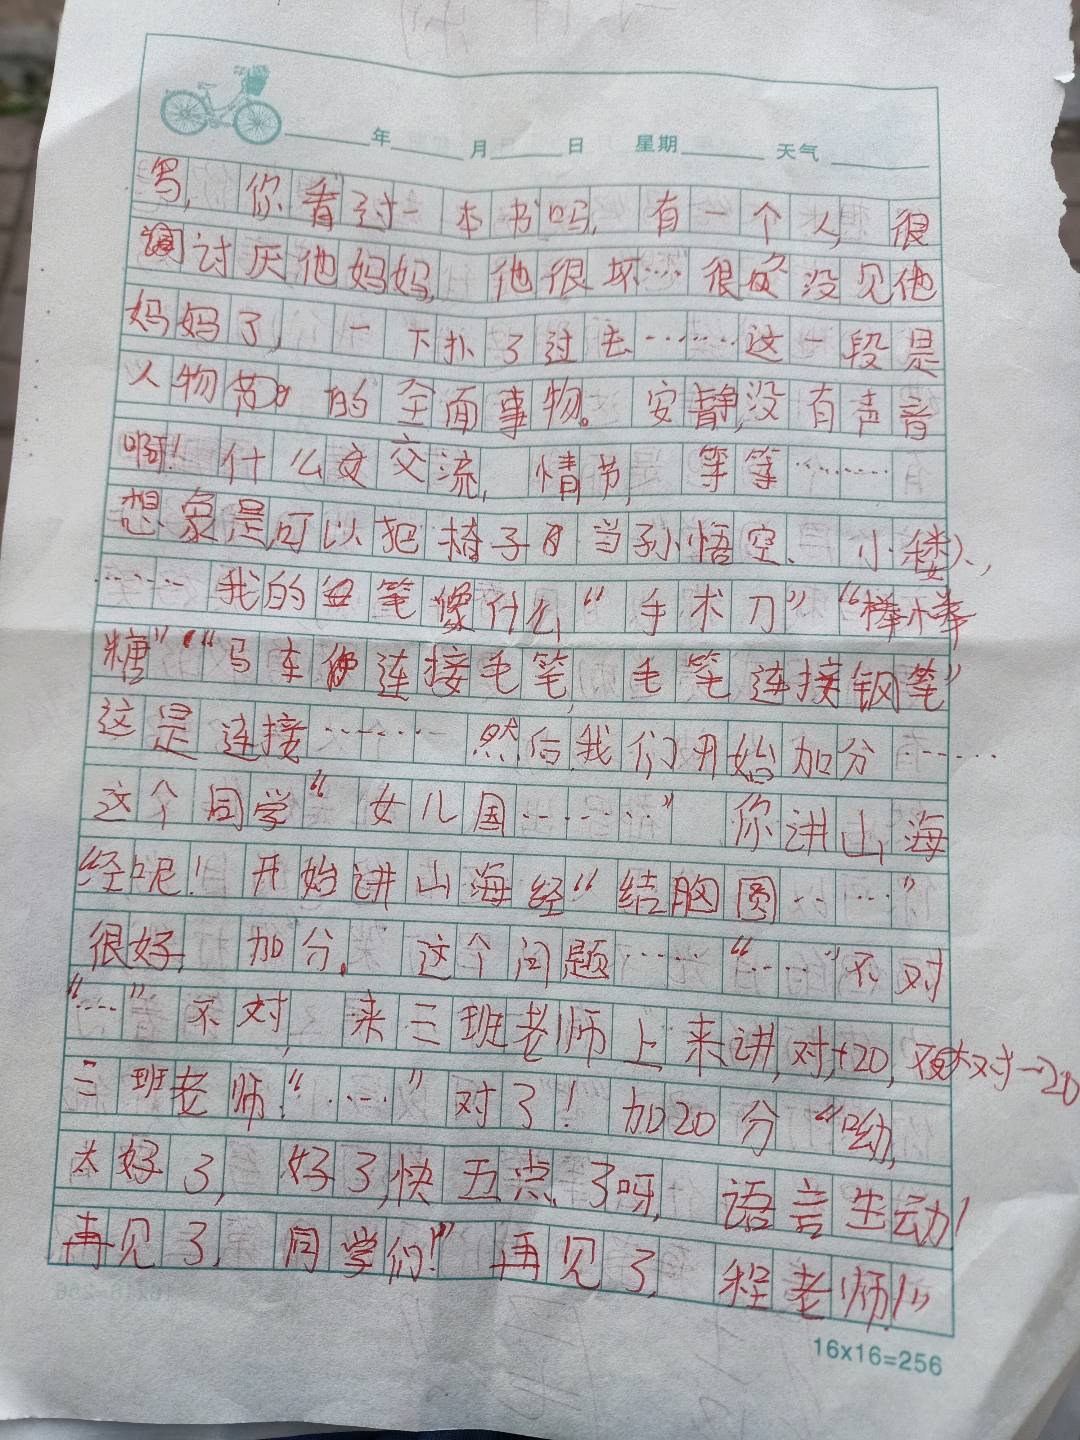 年 月 日 星期 天气
写,你看过一本书吗,有一个人,很
讨厌他妈妈,他很坏……很久没见他
妈妈了,一下扑了过去……这一段是
人物 的全面事物。安静,没有声音
啊!什么 交流,情节,等等……
想象是,可以把椅子 当孙悟空、小 、
……我的 笔像什么“手术刀”“棒棒
糖”“马车 连接毛笔,毛笔连接钢笔”
这是连接……然后我们开始加分……
这个同学“女儿国……”你讲山海
经呢!开始讲山海经“结胸国……”
很好,加分。这个问题……“……”不对
“……”不对,来三班老师上来讲,对,+20, 不对-20
三班老师!“……”对了!加20分“呦,
太好了,好了,快五点了呀,语言生动!
再见了,同学们!”再见了,程老师!”
16x16=256